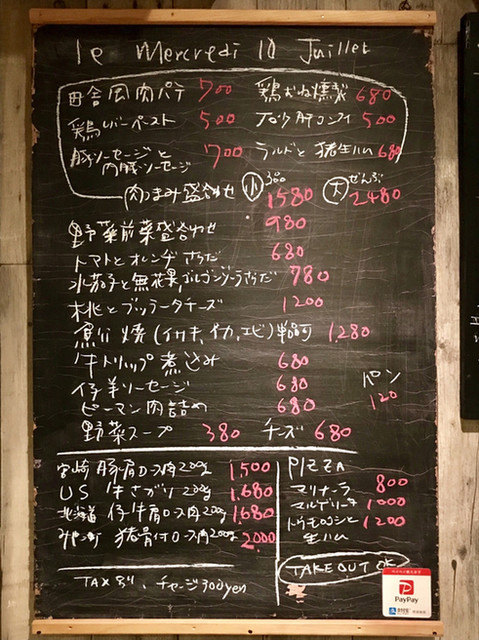 le Mercredi 10 Juillet
田舎風肉パテ 700 鶏むね燻製 680
鶏レバーペースト 500 コンフィ 500
豚ソーセージと内臓ソーセージ 700 ラルドと猪生ハム 680
肉つまみ盛合わせ 小 3品 1580 大 ぜんぶ 2480
野菜前菜盛合わせ 980
トマトとオレンヂさらだ 680
水茄子と無花果、ゴルゴンゾーラさらだ 780
桃とブッラータチーズ 1200
魚介焼(イサキ, イカ, エビ)単品可 1,280
牛トリップ煮込み 680
仔羊ソーセージ 680
パン 120
ピーマン肉詰め 680
野菜スープ 380 チーズ 680
宮崎 豚肩ロース肉200g 1500
US 牛さがり 200g 1,680
北海道 仔牛肩ロース肉200g 1,680
猪骨付ロース肉200g 2000
PIZZA
マリナーラ 800
マルゲリータ 1000
トウモロコシと生ハム 1200
TAKE OUT OK
TAX 8%、チャージ300yen
PayPay